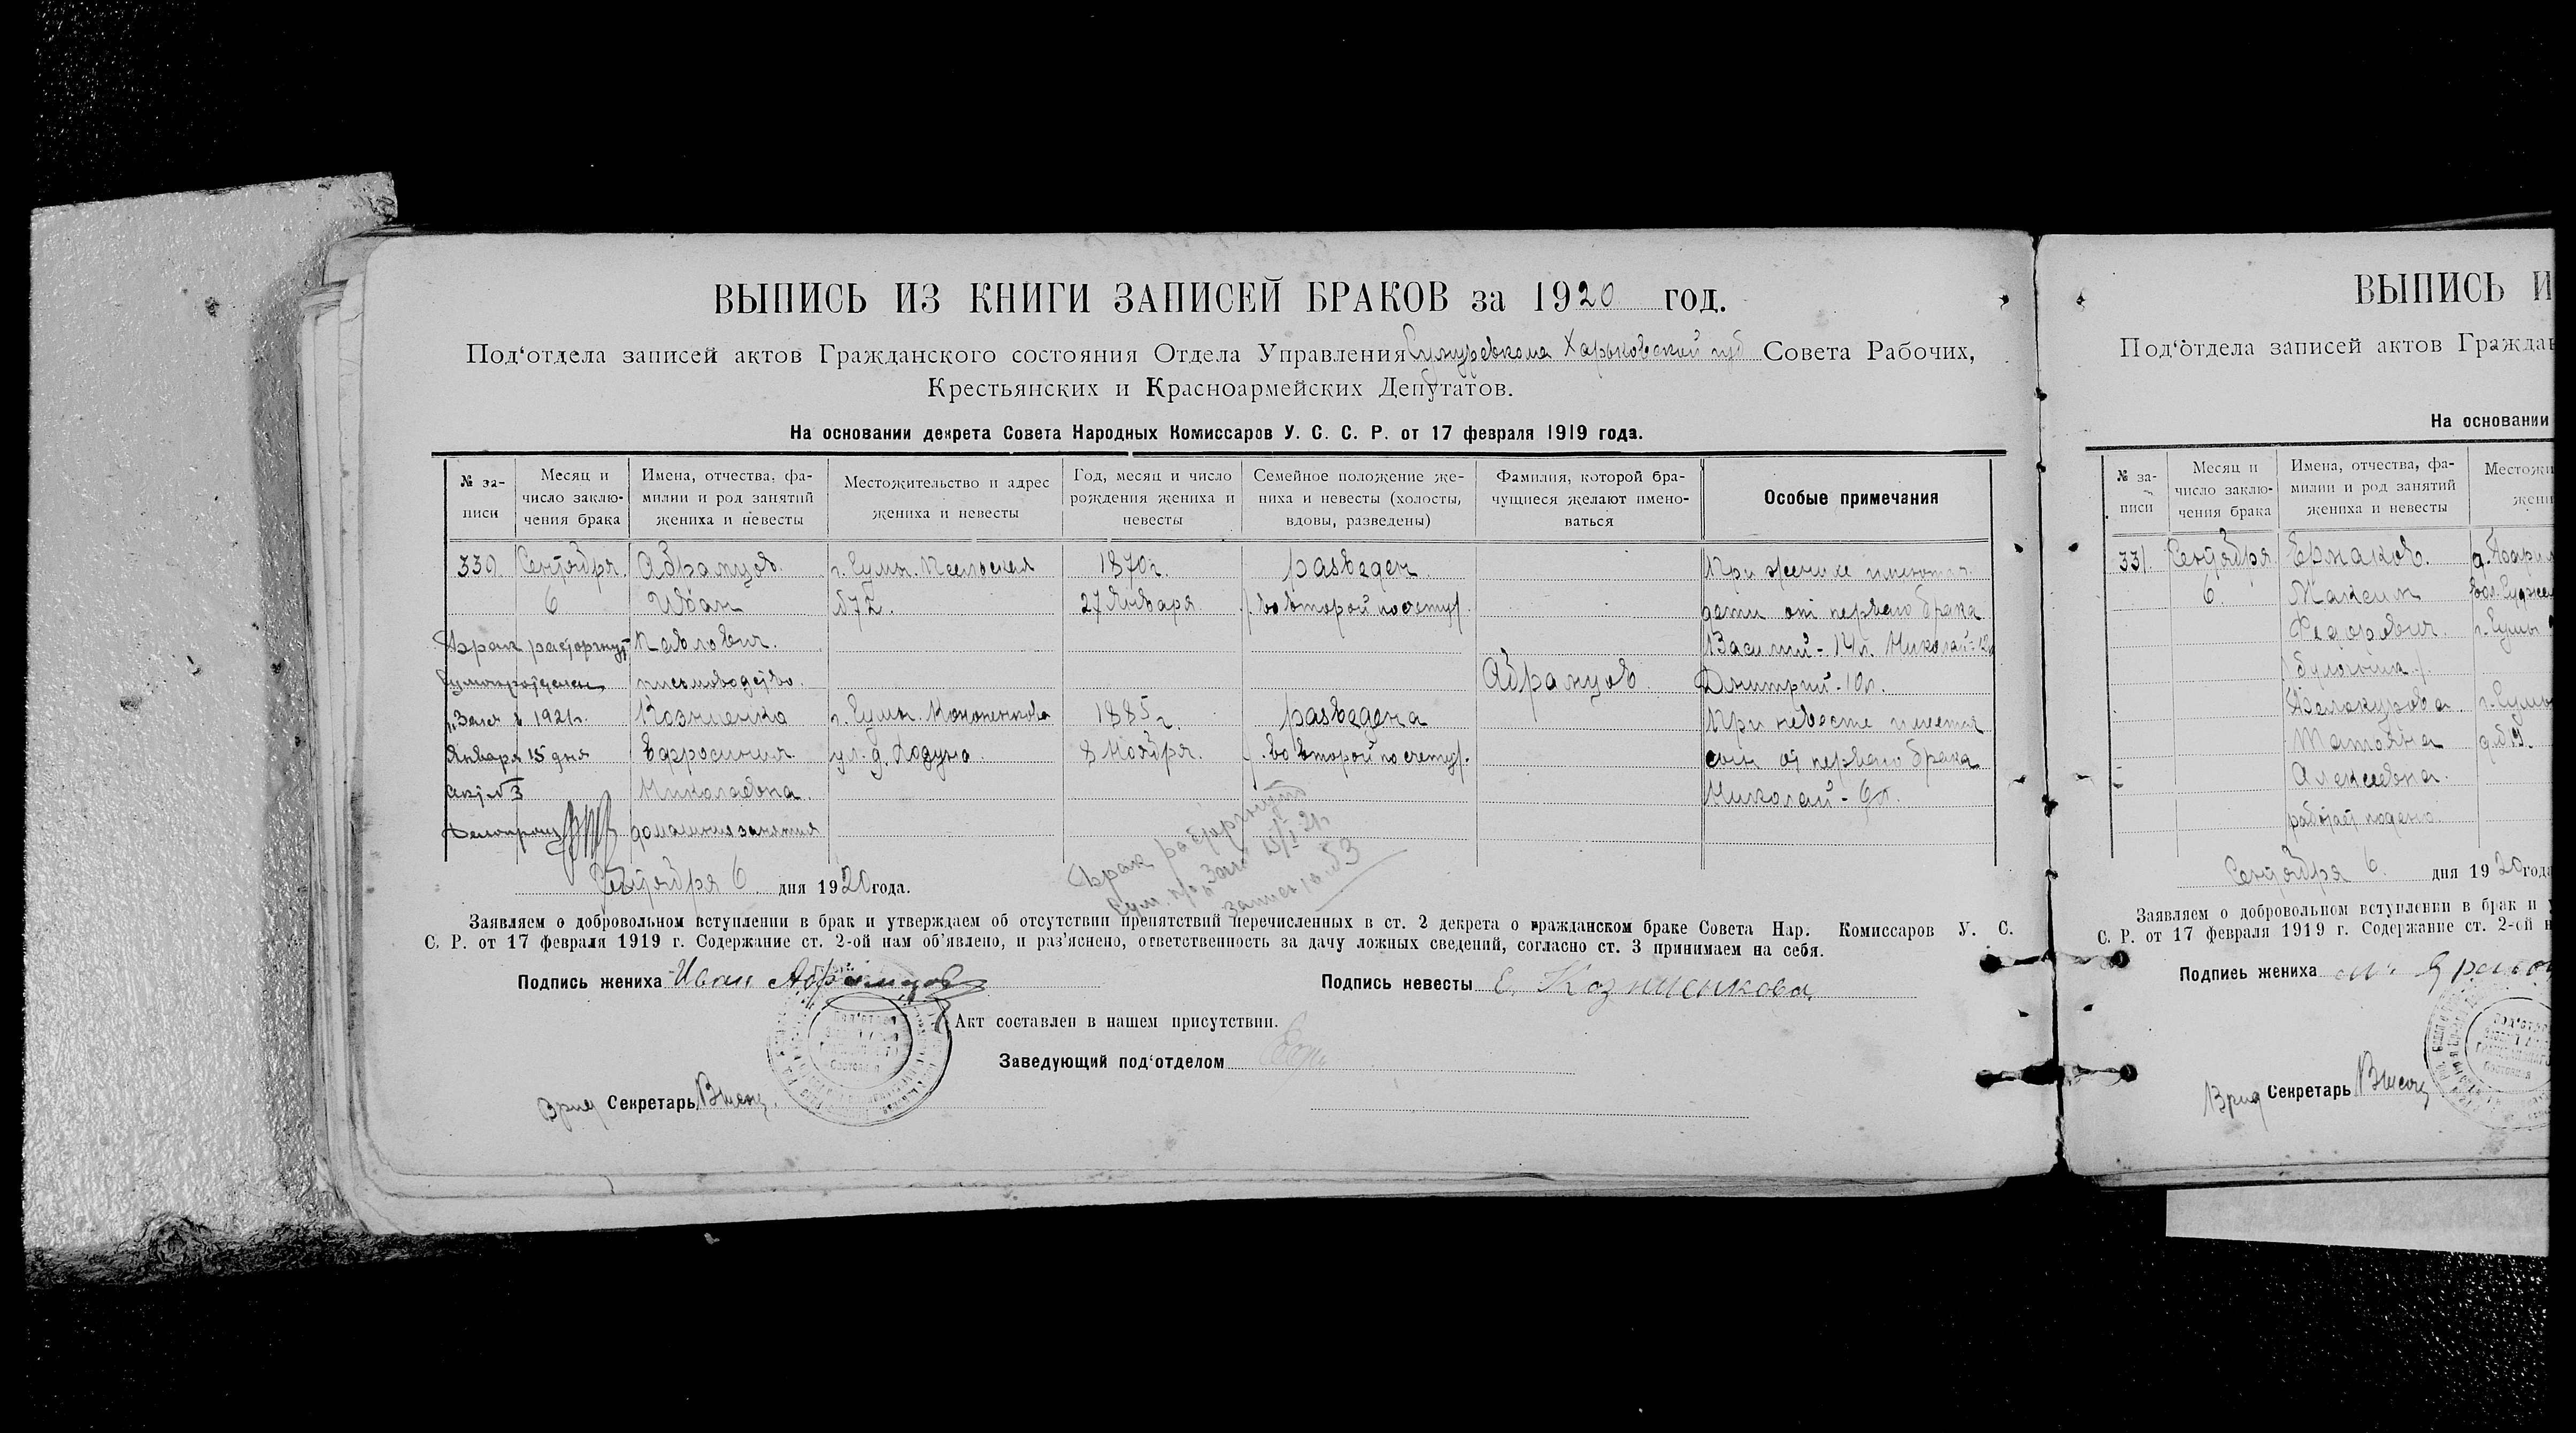 ВЫПИСЬ ИЗ КНИГИ ЗАПИСЕЙ БРАКОВ за 1920 год.
Под‘отдела записей актов Гражданского состояния Отдела Управления Сумуревкома Харьковской губ Совета Рабочих,
Крестьянских и Красноармейских Депутатов.
На основании декрета Совета Народных Комиссаров У. С. С. Р. от 17 февраля 1919 года.
№ за-
писи
Месяц и
число заклю-
чения брака
Имена, отчества, фа-
милии и род занятий
жениха и невесты
Местожительство и адрес
жениха и невесты
Год, месяц и число
рождения жениха и
невесты
Семейное положение же-
ниха и невесты (холосты,
вдовы, разведены)
Фамилия, которой бра-
чущиеся желают имено-
ваться
Особые примечания
330. Сентября
6
Абрамцов.
Иван
Павлович.
письмоводство.
г. Сумы. Псельская
№72.
1870г.
27 Января
разведен.
/во второй по счету/.
Абрамцов.
При женихе имеются
дети от первого брака
Василий - 14л. Николай - 12л
Дмитрий - 10л.
Брак расторгнут
1921г.
Января 15 дня
акт №3
Козменко
Ефросиния
Николаевна.
домашние занятия
г. Сумы. Кононенкова
ул. д.
1885г.
8 Ноября.
разведена
/во второй по счету/.
При невесте имеется
сын от первого брака
Николай - 6л.
Брак расторгнут
15/I 21г
запись №3
Сентября 6 дня 1920 года.
Заявляем о добровольном вступлении в брак и утверждаем об отсутствии препятствий перечисленных в ст. 2 декрета о гражданском браке Совета Нар. Комиссаров У. С.
С. Р. от 17 февраля 1919 г. Содержание ст. 2-ой нам об’явлено, и раз’яснено, ответственность за дачу ложных сведений, согласно ст. 3 принимаем на себя.
Подпись жениха Иван Абрамцов
Подпись невесты Е. Козменкова.
Акт составлен в нашем присутствии.
Заведующий под‘отделом
Врид Секретарь
ВЫПИСЬ И
Под‘отдела записей актов Граждан
На основании
№ за-
писи
Месяц и
число заклю-
чения брака
Имена, отчества, фа-
милии и род занятий
жениха и невесты
Местожи
жени
331. Сентября
6.
Ермаков.
Максим
Федорович.
/булочник/.
Белокурова
Татьяна
Алексеевна.
работает поденно.
г. Сумы
Сентября 6. дня 1920 года
Заявляем о добровольном вступлении в брак и у
С. Р. от 17 февраля 1919 г. Содержание ст. 2-ой н
Подпись жениха
Врид Секретарь